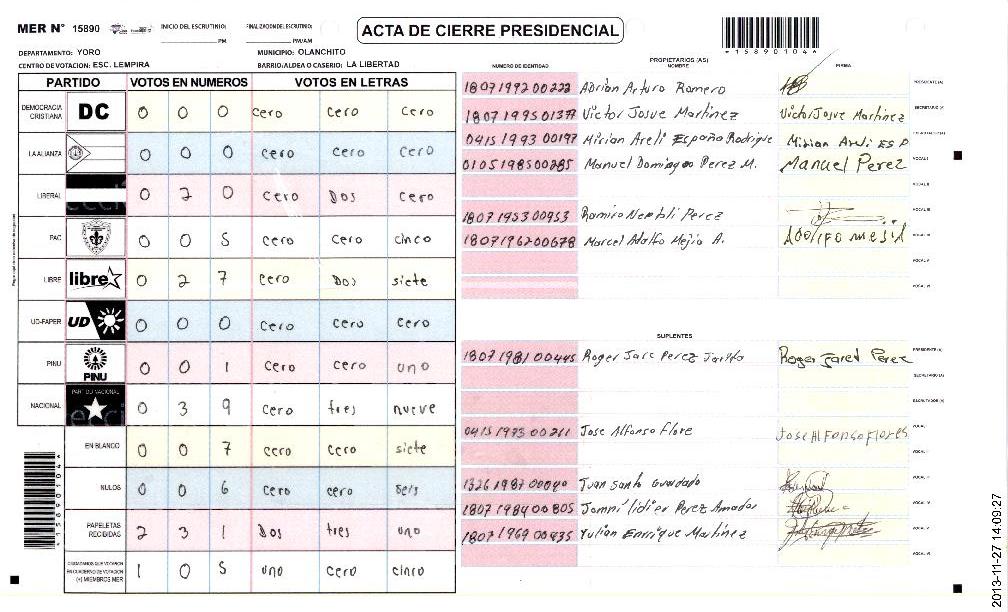 MER N° 15890 INICIO DEL ESCRUTINIO: PM FINALIZACION DEL ESCRUTINIO: PM/AM
ACTA DE CIERRE PRESIDENCIAL
*15890104*
DEPARTAMENTO: YORO MUNICIPIO: OLANCHITO
CENTRO DE VOTACION: ESC. LEMPIRA BARRIO/ALDEA O CASERIO: LA LIBERTAD
PARTIDO VOTOS EN NUMEROS VOTOS EN LETRAS
DEMOCRACIA CRISTIANA DC 0 0 0 cero cero cero
LA ALIANZA 0 0 0 cero cero cero
LIBERAL 0 2 0 cero Dos cero
PAC 0 0 5 cero cero cinco
LIBRE libre 0 2 7 cero Dos siete
UD-FAPER UD 0 0 0 cero cero cero
PINU PINU 0 0 1 cero cero uno
NACIONAL PARTIDO NACIONAL 0 3 9 cero tres nueve
EN BLANCO 0 0 7 cero cero siete
NULOS 0 0 6 cero cero seis
PAPELETAS RECIBIDAS 2 3 1 Dos tres uno
CIUDADANOS QUE VOTARON EN CUADERNO DE VOTACION (+) MIEMBROS MER 1 0 5 uno cero cinco
*15890104*
PROPIETARIOS (AS)
NUMERO DE IDENTIDAD NOMBRE FIRMA
1807199200222 Adrian Arturo Romero PRESIDENTE (A)
1807199501377 Victor Josue Martinez Victor Josue Martinez SECRETARIO (A)
0415199300197 Mirian Areli España Rodrigue Mirian Areli ES P
0105198500285 Manuel Domingo Perez M. Manuel Perez VOCAL I
VOCAL II
1807195300953 Ramiro Neptali Perez VOCAL III
1807196200678 Marcel Adalfo Mejia A. VOCAL IV
VOCAL V
VOCAL VI
SUPLENTES
1807198100445 Roger Jarc Perez Roger Jared Perez PRESIDENTE (A)
SECRETARIO (A)
ESCRUTADOR (A)
0415197300211 Jose Alfonso Flore Jose Alfonso Flores VOCAL I
Juan Santo Guardado
1807198400805 Perez Amador VOCAL IV
1807196900435 Yulian Enrrique Martinez VOCAL V
VOCAL VI
2013-11-27 14:09:27